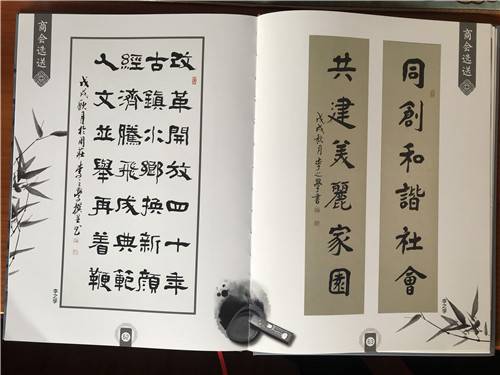 商会选送
改革開放四十年
古鎮水鄉換新顏
經濟騰飛成典範
人文並舉再着鞭
戊戌秋月於周莊李之學撰並書
李之学
62
商会选送
同創和諧社會
共建美麗家園
戊戌秋月李之學書
李之学
63